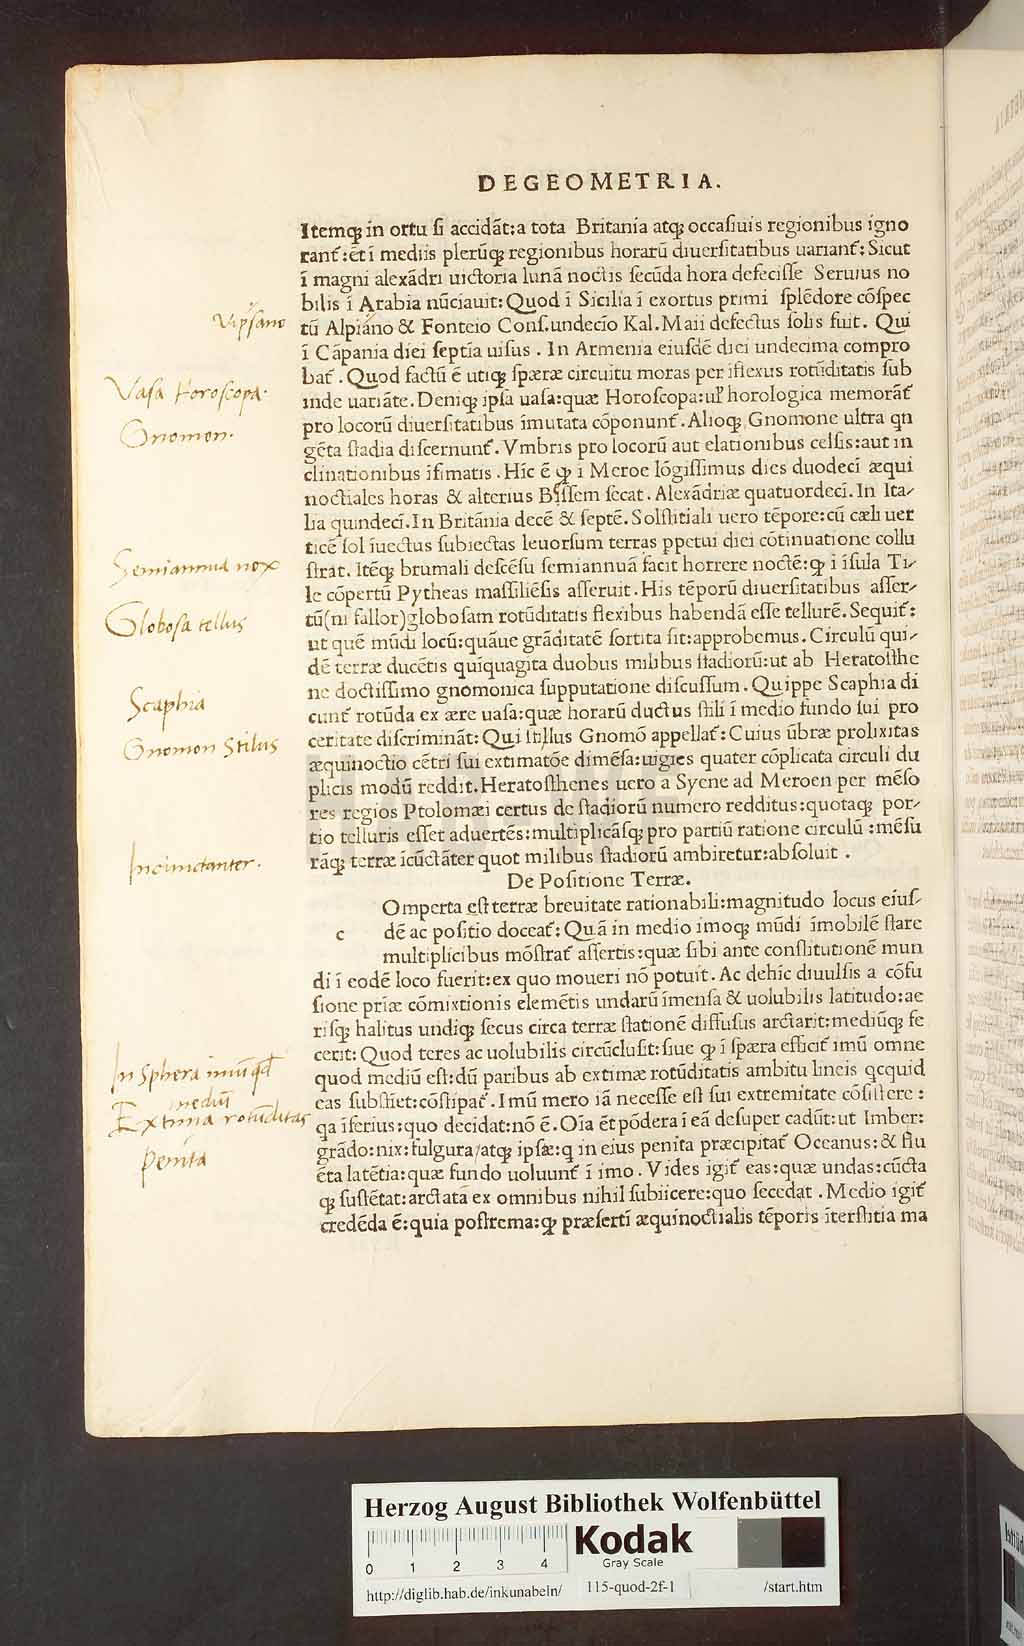 DEGEOMETRIA.
Itemqꝫ in ortu ſi accidãt:a tota Britania atqꝫ occaſiuis regionibus igno
rant᷑:ẽt ĩ mediis plerũqꝫ regionibus horarũ diuerſitatibus uariant᷑: Sicut
ĩ magni alexãdri uictoria lunã noctis ſecũda hora defeciſſe Seruius no
bilis ĩ Arabia nũciauit:Quod ĩ Sicilia ĩ exortus primi ſplẽdore cõſpec
Vipſano
tũ Alpiano & Fonteio Conſ.undecĩo Kal.Maii defectus ſolis fuit. Qui
ĩ Cãpania diei ſeptĩa uiſus . In Armenia eiuſdẽ diei undecima compro
bat᷑ . Quod factũ ẽ utiqꝫ ſpæræ circuitu moras per ĩflexus rotũditatis ſub
Vaſa Horoſcopa.
inde uariãte. Deniqꝫ ipſa uaſa:quæ Horoſcopa:ul̉ horologica memorãt᷑
pro locorũ diuerſitatibus ĩmutata cõponunt᷑. Alioqꝫ Gnomone ultra qn
Gnomon.
gẽta ſtadia diſcernunt᷑ . Vmbris pro locorũ aut elationibus celſis:aut in
clinationibus ĩfimatis . Hĩc ẽ ꝙ ĩ Meroe lõgiſſimus dies duodecĩ æqui
noctiales horas & alterius Byſſem ſecat . Alexãdriæ quatuordecĩ. In Ita-
lia quindecĩ. In Britãnia decẽ & ſeptẽ. Solſtitiali uero tẽpore:cũ cæli uer
ticẽ ſol ĩuectus ſubiectas leuorſum terras ppetui diei cõtinuatione collu
Semiannua nox
ſtrat. Itẽqꝫ brumali deſcẽſu ſemiannuã facit horrere noctẽ:ꝙ ĩ ĩſula Ti-
le cõpertũ Pytheas maſſiliẽſis aſſeruit. His tẽporũ diuerſitatibus aſſer-
Globoſa tellus
tũ(ni fallor)globoſam rotũditatis flexibus habendã eſſe tellurẽ. Sequit᷑:
ut quẽ mũdi locũ:quãue grãditatẽ ſortita ſit:approbemus. Circulũ qui-
dẽ terræ ducẽtis quĩquagita duobus milibus ſtadiorũ:ut ab Heratoſthe
ne doctiſſimo gnomonica ſupputatione diſcuſſum . Quippe Scaphia di
Scaphia
cunt᷑ rotũda ex ære uaſa:quæ horarũ ductus ſtili ĩ medio fundo ſui pro
ceritate diſcriminãt: Qui ſtillus Gnomõ appellat᷑: Cuius ũbræ prolixitas
Gnomon Stilus
æquinoctio cẽtri ſui extimatõe dimẽſa:uigies quater cõplicata circuli du
plicis modũ reddit. Heratoſthenes uero a Syene ad Meroen per mẽſo
res regios Ptolomæi certus de ſtadiorũ numero redditus:quotaqꝫ por-
tio telluris eſſet aduertẽs:multiplicãſqꝫ pro partiũ ratione circulũ :mẽſu
Incunctanter.
rãqꝫ terræ ĩcũctãter quot milibus ſtadiorũ ambiretur:abſoluit .
De Poſitione Terræ.
Omperta eſt terræ breuitate rationabili:magnitudo locus eiuſ-
c dẽ ac poſitio doceat᷑: Quã in medio imoqꝫ mũdi ĩmobilẽ ſtare
multiplicibus mõſtrat᷑ aſſertis:quæ ſibi ante conſtitutionẽ mun
di ĩ eodẽ loco fuerit:ex quo moueri nõ potuit . Ac dehĩc diuulſis a cõfu
ſione priæ cõmixtionis elemẽtis undarũ ĩmenſa & uolubilis latitudo:ae
riſqꝫ halitus undiqꝫ ſecus circa terræ ſtationẽ diffuſus arctarit:mediũqꝫ fe
cerit: Quod teres ac uolubilis circũcluſit:ſiue ꝙ ĩ ſpæra efficit᷑ imũ omne
In Sphera imũ qd
quod mediũ eſt:dũ paribus ab extimæ rotũditatis ambitu lineis qcquid
mediũ
eas ſubſtĩet:cõſtipat᷑ . Imũ mero iã neceſſe eſt ſui extremitate cõſiſtere :
Extima rotũditas
qa ĩferius:quo decidat:nõ ẽ. Oĩa ẽt põdera ĩ eã deſuper cadũt:ut Imber:
grãdo:nix:fulgura/atqꝫ ipſæ:q in eius penita præcipitat᷑ Oceanus:& flu
penita
ẽta latẽtia:quæ fundo uoluunt᷑ ĩ imo . Vides igit᷑ eas:quæ undas:cũcta
qꝫ ſuſtẽtat:arctatã ex omnibus nihil ſubiicere:quo ſecedat . Medio igit᷑
credẽda ẽ:quia poſtrema:ꝙ præſertĩ æquinoctialis tẽporis ĩterſtitia ma
HAB WF
Herzog August Bibliothek Wolfenbüttel
0 1 2 3 4
Kodak
Gray Scale
http://diglib.hab.de/inkunabeln/ 115-quod-2f-1 /start.htm